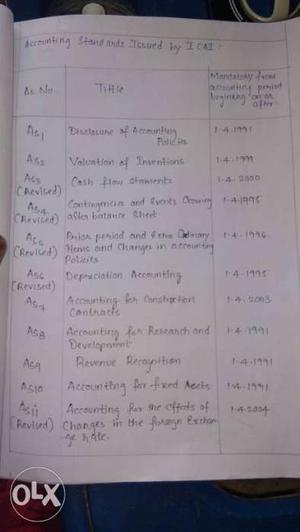 Accounting Standards Issued by ICAI :-
As No.
Tittle
Mandatory from
accounting period
beginning on or
after.
As1
Disclosure of Accounting
Policies
1-4-1991
As2
Valuation of Inventions
1-4-1999
As3
(Revised)
Cash flow Staments
1-4-2000
As4
(Revised)
Contingencies and Events Occuring
after balance Sheet
1-4-1995
As5
(Revised)
Prior period and Extra Ordinary
Items and Changes in accounting
Policies
1-4-1996
As6
(Revised)
Depreciation Accounting
1-4-1995
As7
Accounting for Construction
Contracts
1-4-2003
As8
Accounting for Research and
Development
1-4-1991
As9
Revenue Recognition
1-4-1991
As10
Accounting for fixed Assets
1-4-1991
As11
(Revised)
Accounting for the effects of
Changes in the foreign Exchan
ge Rate.
1-4-2004
OLX